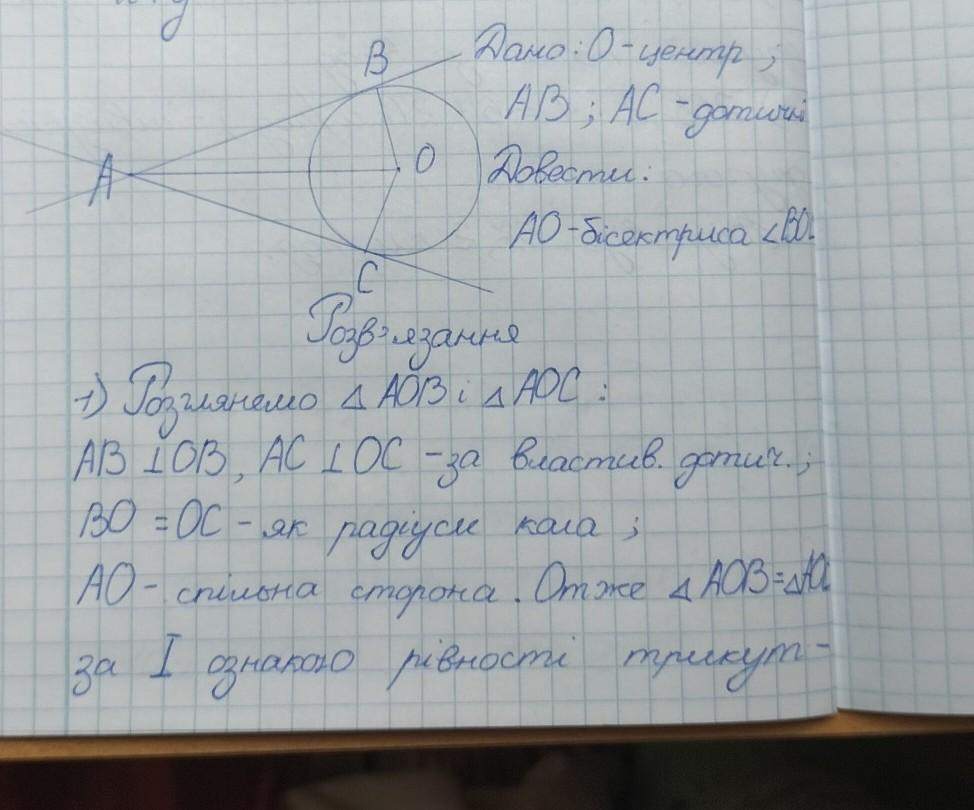 B
Дано: O - центр ;
AB ; AC - дотичні
A
O
Довести:
AO - бісектриса ∠BO
C
Розв'язання
1) Розглянемо △ AOB і △ AOC :
AB ⊥ OB, AC ⊥ OC - за властив. дотич. ;
BO = OC - як радіуси кола ;
AO - спільна сторона. Отже △ AOB = △AO
за I ознакою рівності трикут-